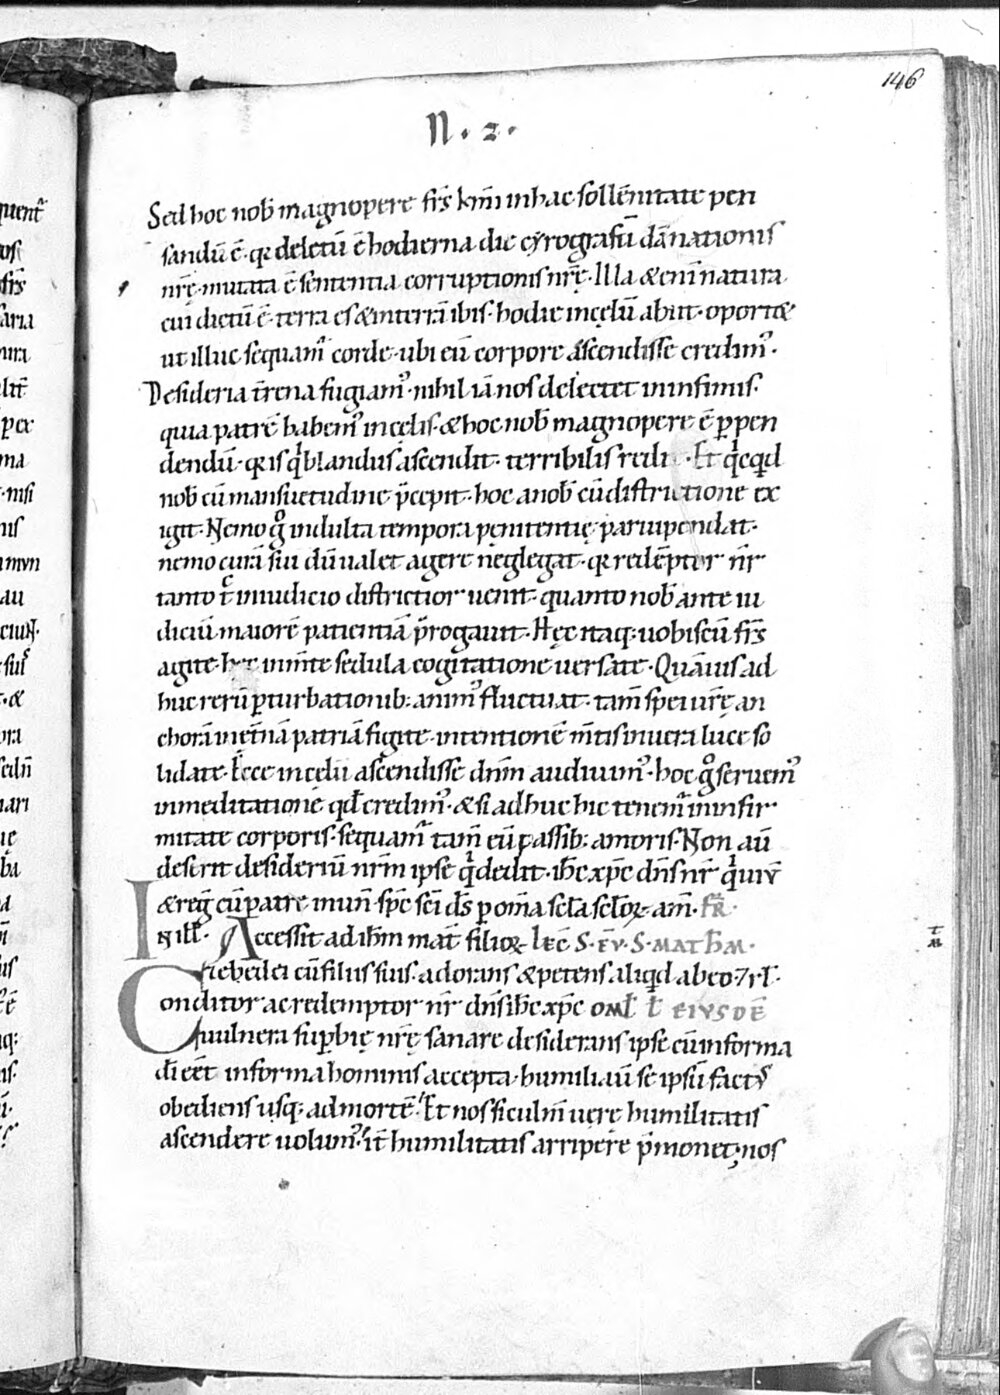 146
N. 2.
quent
Sed hoc nob̄ magnopere fr̄s km̄i in hac sollēnitate pen
sandū ē. qꝛ deletū ē hodierna die cyrografū dānationis
nr̄ę. mutata ē sententia corruptionis nr̄ę. Illa & enī natura
cui dictū ē. terra es & in terrā ibis. hodie in cęlū abiit. oport&
ut illuc sequam᷒ corde. ubi eū corpore ascendisse credim᷒.
Desideria t̄rena fugiam᷒. nihil iā nos delectet in infimis.
quia patrē habem᷒ in cęlis. & hoc nob̄ magnopere ē ꝑpen
dendū. qꝛ is qͥ blandus ascendit. terribilis redi. Et qͥcqͥd
nob̄ cū mansuetudine p̄cepit. hoc a nob̄ cū districtione ex
igit. Nemo gͦ indulta tempora pęnitentię paruipendat.
nemo curā sui dū ualet agere neglegat. qꝛ redēptor nr̄
tanto tͨ in iudicio districtior ueniet. quanto nob̄ ante iu
diciū maiorē patientiā p̄rogauit. Hęc itaq; uobiscū fr̄s
agite. hęc in m̄te sedula cogitatione uersate. Quāuis ad
huc rerū ꝑturbationib; anim᷒ fluctuat. tam̄ spei ur̄ę an
chorā in et̄nā patriā figite. intentionē m̄tis in uera luce so
lidate. Ecce in cęlū ascendisse dn̄m audiuim᷒. hoc gͦ seruem᷒
in meditationē qd̄ credim᷒. & si adhuc hic tenem᷒ in infir
mitate corporis. sequam᷒ tam̄ eū passib; amoris. Non aū
deserit desideriū nr̄m ipse qͥ dedit. ih̄c xp̄c dn̄s nr̄ qͥ uiū
& reg̃ cū patre in un̄ sp̄c sc̄i d̄s ꝑ om̄a scl̄a scl̄oꝝ. am̄. FR̄.
IN ill̄. Accessit ad ih̄m mat̄ filioꝝ LEC̄ S. EV̄. S. MATH̄M.
zebedei cū filiis suis. adorans & petens aliqͥd ab eo. 7 rl̄.
Conditor ac redemptor nr̄ dn̄s ih̄c xp̄c OML̄ L̄ EIUSDĒ
uulnera suꝑbię nr̄ę sanare desiderans ipse cū in forma
dī eēt in forma hominis accepta. humiliauit se ipsū fact᷒
obediens usq; ad mortē. Et nos si culm̄ uerę humilitatis
ascendere uolum᷒. it̄ humilitatis arripere p̄monet; nos